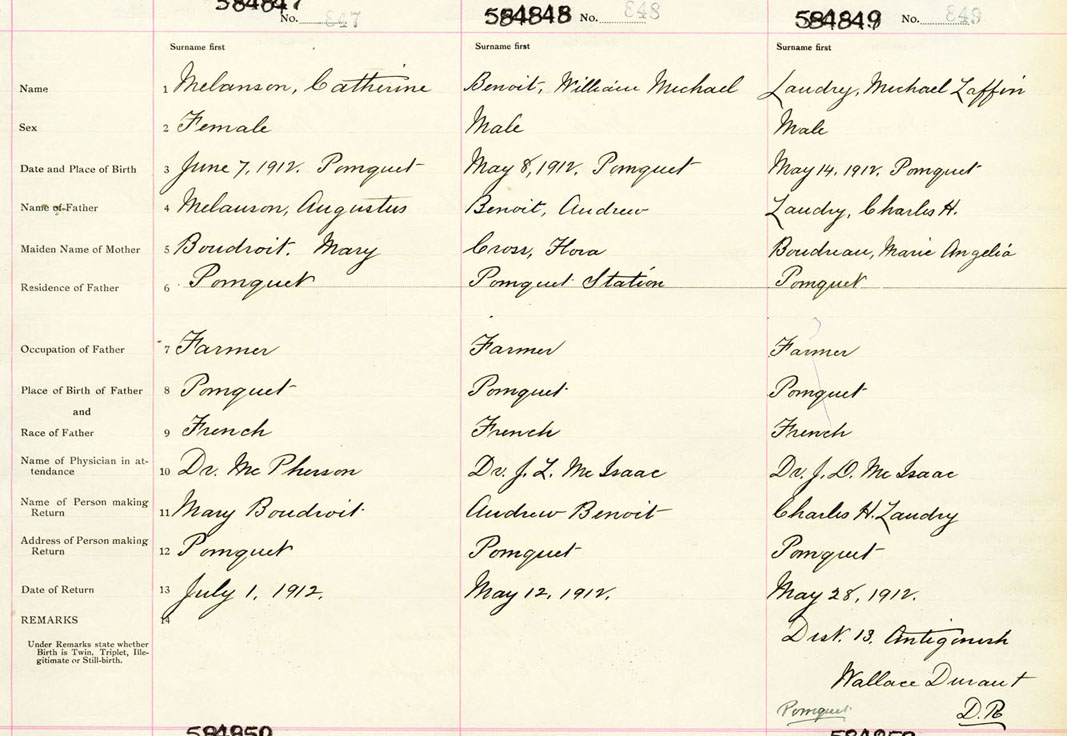 584847 No. 847 584848 No. 848 584849 No. 849
Surname first Surname first Surname first
Name 1 Melanson, Catherine Benoit, William Michael Landry, Michael Laffin
Sex 2 Female Male Male
Date and Place of Birth 3 June 7, 1912. Pomquet May 8, 1912. Pomquet May 14. 1912. Pomquet
Name of Father 4 Melanson, Augustus Benoit, Andrew Landry, Charles H.
Maiden Name of Mother 5 Boudroit. Mary Cross, Flora Boudreau, Marie Angelia
Residence of Father 6 Pomquet Pomquet Station Pomquet
Occupation of Father 7 Farmer Farmer Farmer
Place of Birth of Father 8 Pomquet Pomquet Pomquet
and
Race of Father 9 French French French
Name of Physician in at-
tendance 10 Dr. McPherson Dr. J. L. McIsaac Dr. J. D. McIsaac
Name of Person making
Return 11 Mary Boudroit Andrew Benoit Charles H. Landry
Address of Person making
Return 12 Pomquet Pomquet Pomquet
Date of Return 13 July 1, 1912. May 12, 1912. May 28, 1912.
REMARKS 14
Under Remarks state whether
Birth is Twin, Triplet, Ille-
gitimate or Still-birth.
Dist. 13. Antigonish
Wallace Durant
Pomquet D.R.
584850